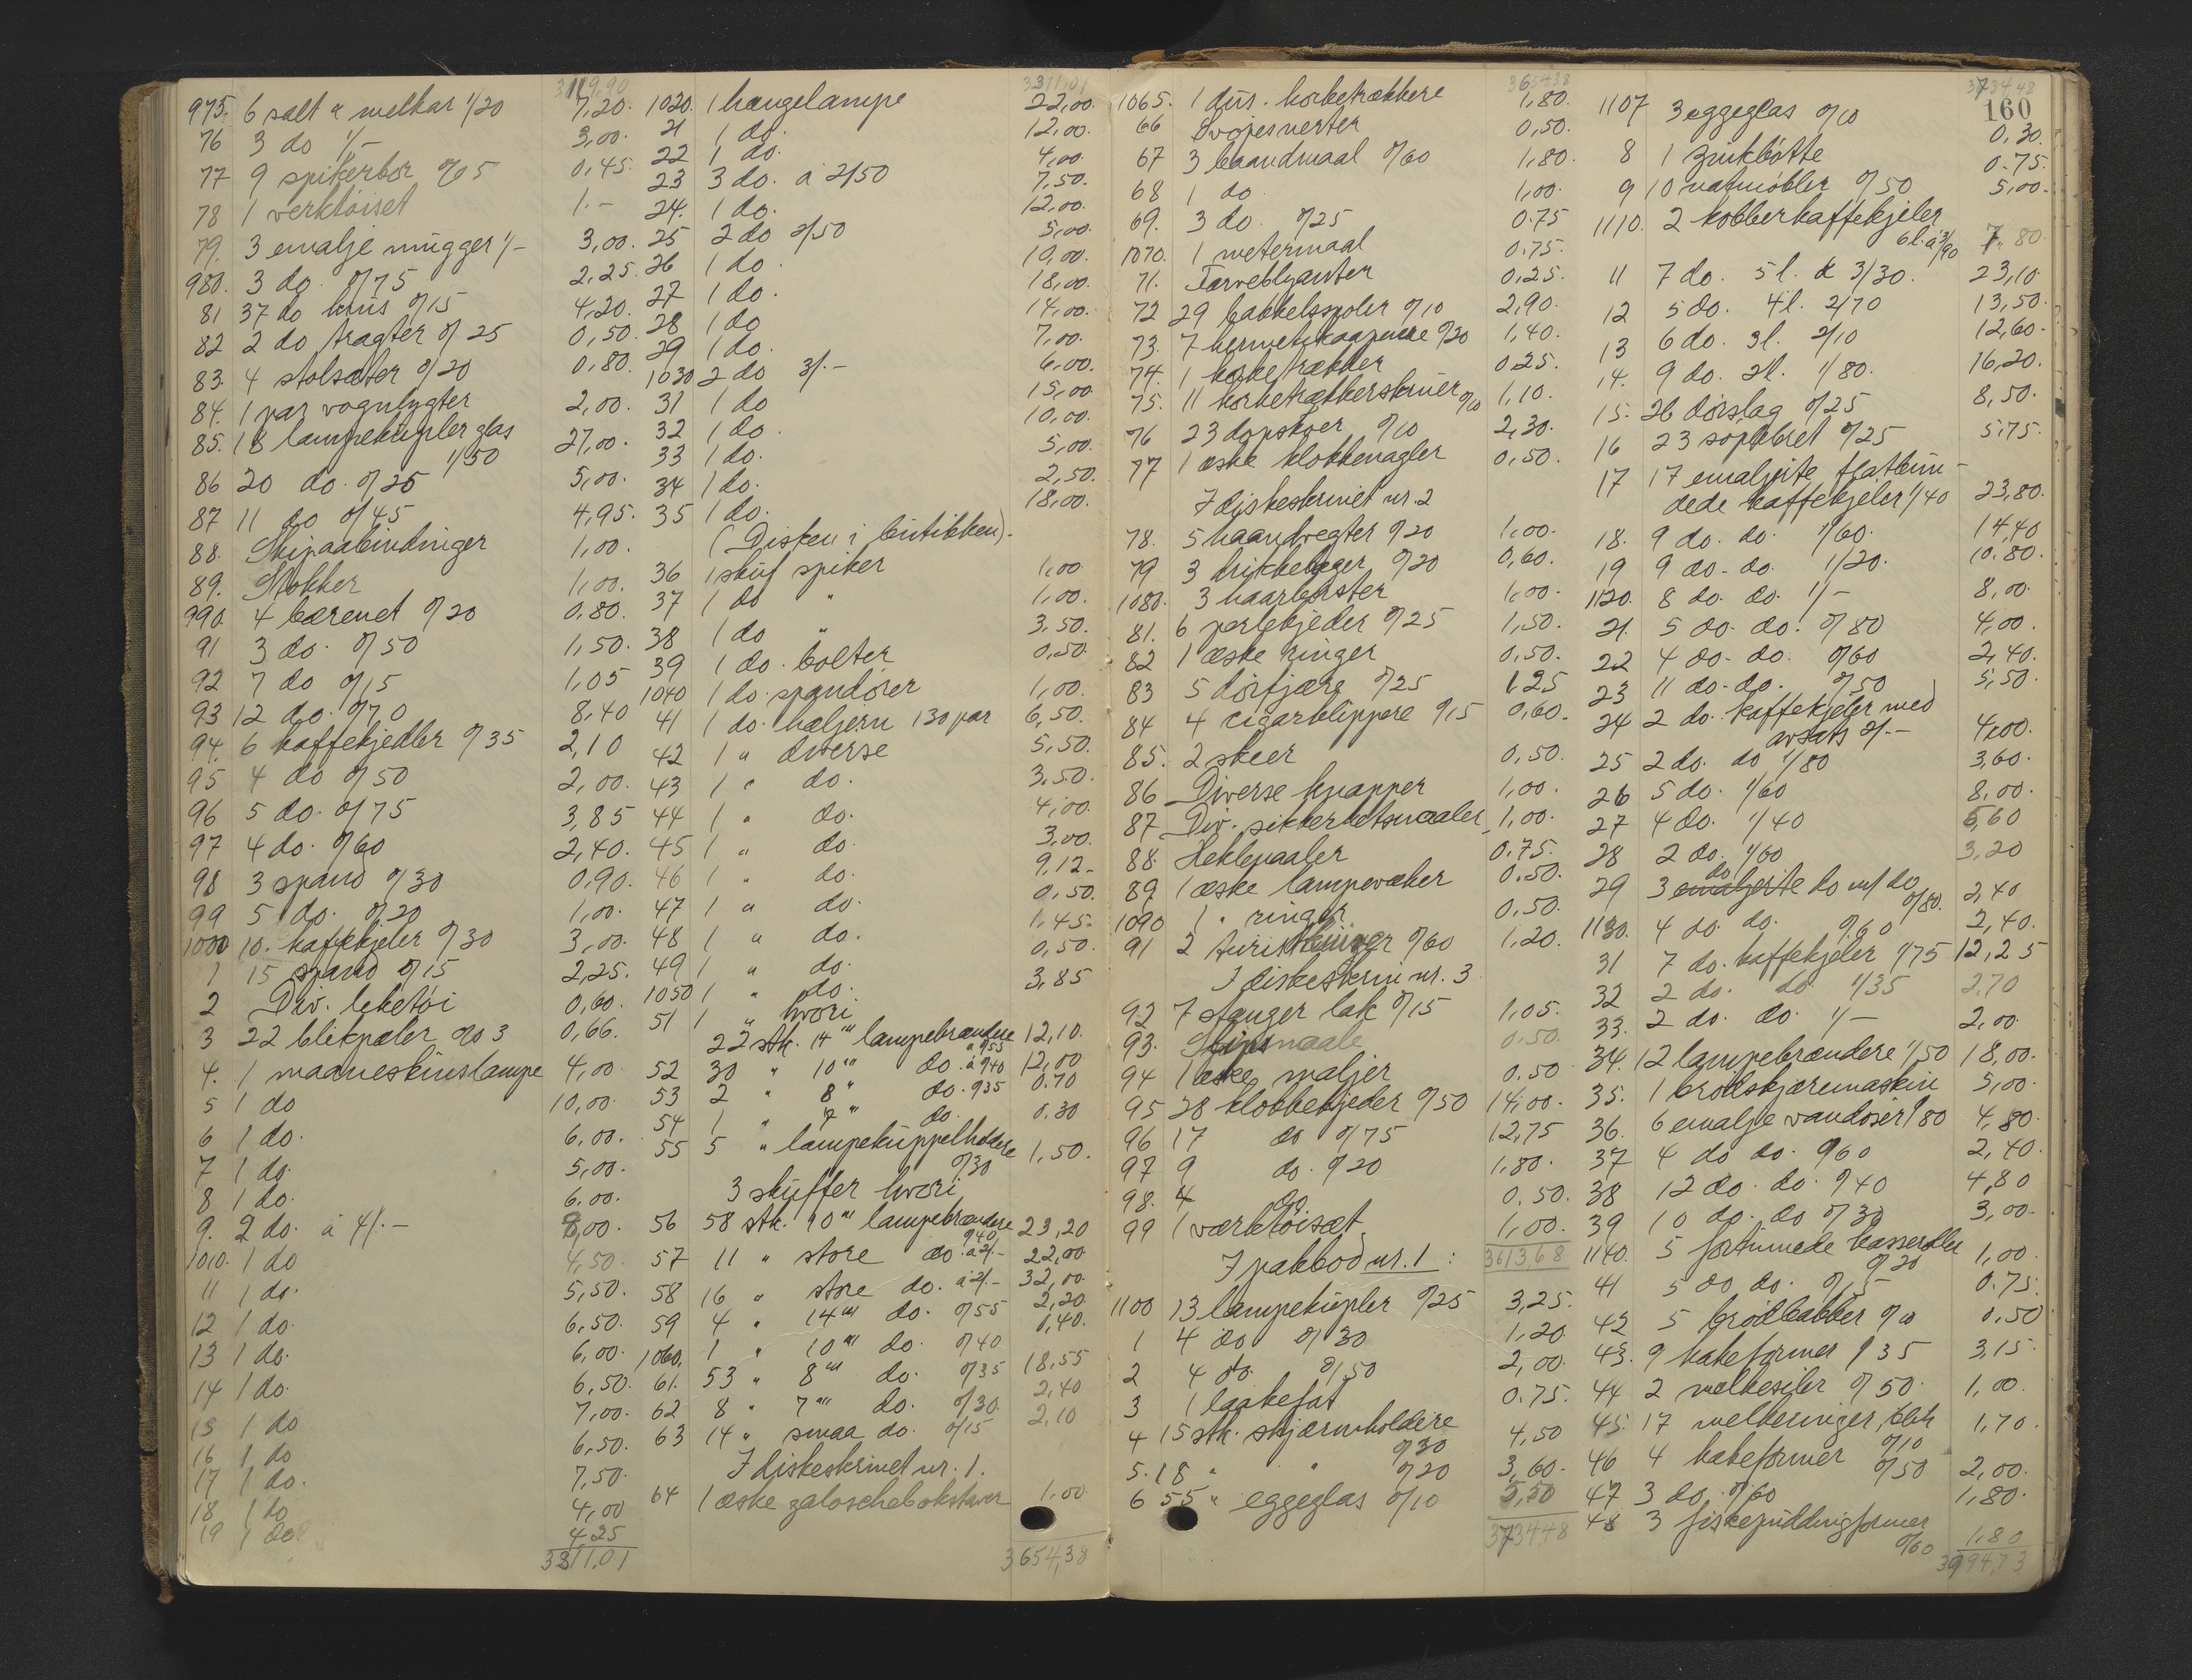 3119.90
975. 6 salt & melkar 1/20 7,20.
76 3 do 1/- 3,00.
77 9 spikerbor 0/05 0,45.
78 1 verktøiset 1.-
79. 3 emalje mugger 1/- 3,00.
980. 3 do. 0/75 2,25.
81 37 do krus 0/15 4,20.
82 2 do tragter 0/25 0,50.
83. 4 stolsæter 0/20 0,80.
84. 1 par vognlygter 2,00.
85. 18 lampekupler glas 1/50 27,00.
86 20 do. 0/25 5,00.
87 11 do 0/45 4,95.
88. Skipaabindinger 1,00.
89. Stokker 1,00.
990. 4 bærenet 0/20 0,80.
91 3 do. 0/50 1,50.
92 7 do 0/15 1,05
93 12 do. 0/70 8,40
94. 6 kaffekjedler 0/35 2,10
95 4 do 0/50 2,00.
96 5 do. 0/75 3,85
97 4 do. 0/60 2,40.
98 3 spand 0/30 0,90.
99 5 do. 0/20 1,00.
1000 10. kaffekjeler 0/30 3,00.
1 15 spand 0/15 2,25.
2 Div. leketøi 0,60.
3 22 blikpæler 0/03 0,66.
4. 1 maaneskinslampe 4,00
5 1 do 10,00.
6 1 do. 6,00.
7 1 do. 5,00.
8 1 do. 6,00.
9. 2 do. á 4/.- 8,00.
1010. 1 do 4,50
11 1 do. 5,50.
12 1 do. 6,50.
13 1 do. 6,00.
14 1 do. 6,50.
15 1 do 7,00.
16 1 do 6,50.
17 1 do. 7,50.
18 1 do 4,00
19 1 do. 4,25
3311.01
3311,01
1020. 1 hængelampe 22,00.
21 1 do. 12,00.
22 1 do. 4,00.
23 3 do. á 2/50 7,50.
24. 1 do. 12,00.
25 2 do 2/50 5,00.
26 1 do. 10,00.
27 1 do. 18,00.
28 1 do 14,00.
29 1 do. 7,00.
1030 2 do 3/.- 6,00.
31 1 do 15,00
32 1 do. 10,00.
33 1 do. 5,00.
34 1 do. 2,50.
35 1 do. 18,00.
(Disken i butikken).
36 1 skuf spiker 1,00
37 1 do " 1,00.
38 1 do " 3,50.
39 1 do. bolter 0,50
1040 1 do. spandører 1,00.
41 1 do. hæljern 130 par 6,50.
42 1 " diverse 5,50.
43 1 " do. 3,50.
44 1 " do. 4,00.
45 1 " do. 3,00.
46 1 " do. 9,12-
47 1 " do. 0,50.
48 1 " do. 1,45.
49 1 " do. 0,50.
1050 1 " do. 3,85
51 1 " hvori
22 stk. 14''' lampebrændere á 0/55 12,10.
52 30 " 10''' do. á 0/40 12,00
53 2 " 8''' do. 0/35 0.70
54 1 " 7''' do. 0.30
55 5 " lampekuppelholdere 0/30 1,50.
3 skuffer hvori
56 58 stk. 10''' lampebrændere 0/40 23,20
57 11 " store do. á 2/- 22,00
58 16 " store do. á 2/.- 32,00.
59 4 " 14''' do. 0/55 2,20.
1060. 1 " 10''' do. 0/40 0,40.
61. 53 " 8''' do. 0/35 18,55
62 8 " 7''' do. 0/30. 2,40
63 14 " smaa do. 0/15 2,10
I diskeskrinet nr. 1.
64 1 æske galoschebokstaver 1,00
3654,38
3654,38
1065. 1 dus. korketrækkere 1,80.
66 0,50.
67 3 baandmaal 0/60 1,80.
68 1 do. 1,00.
69. 3 do. 0/25 0.75
1070. 1 metermaal 0.75.
71. Farveblyanter 0,25.
72 29 bakkelsspoler 0/10 2,90.
73. 7 hermetikaapnere 0/20 1,40.
74. 1 korketrækker 0.25.
75. 11 korketrækkerskruer 0/10 1,10.
76 23 dopskoer 0/10 2,30.
77 1 æske klokkenagler 0,50.
I diskeskrinet nr. 2
78. 5 haandvegter 0/20 1,00.
79 3 drikkebeger 0/20 0,60.
1080. 3 haarbørster 1,00.
81. 6 perlekjeder 0/25 1,50.
82 1 æske ringer 0,50.
83 5 dørfjære 0/25 1.25
84 4 cigarklippere 0/15 0,60.
85. 2 skeer 0,50.
86 Diverse knapper 1,00.
87 Div. sikkerhetsnaaler 1,00.
88. Heklenaaler 0.75.
89 1 æske lampevæker 0.50.
1090 1 " ringer 0,50.
91 2 0/60 1,20.
I diskeskrin nr. 3
92 7 stanger lak 0/15 1,05.
93. Slipsnaale 0.50.
94 1 æske maljer 0.50
95 28 klokkekjeder 0/50 14,00.
96 17 do 0/75 12,75
97 9 do. 0/20 1,80.
98. 4 do. 0.50.
99 1 værktøisæt 1,00.
I pakbod nr. 1: 3613,68
1100 13 lampekupler 0/25 3,25.
1 4 do 0/30 1,20.
2 4 do. 0/50 2,00.
3 1 laakefat 0.75.
4 15 stk. skjærmholdere 0/30 4,50
5. 18 " " 0/20 3,60.
6 55 " eggeglas 0/10 5,50
3734.48
3734,48
160
1107 3 eggeglas 0/10 0,30.
8 1 zinkbøtte 0.75.
9 10 natmøbler 0/50 5,00.
1110. 2 kobberkaffekjeler
6 l. á 3/90 7.80.
11 7 do. 5 l. á 3/30. 23,10.
12 5 do. 4 l. 2/70 13,50.
13 6 do. 3 l. 2/10 12,60.
14. 9 do. 2 l. 1/80. 16,20.
15. 26 dørslag 0/25 8,50.
16 23 sopkbret 0/25 5.75.
17 17 emaljerte flatbun-
dede kaffekjeler 1/40 23,80.
18. 9 do. do. 1/60. 14,40
19 9 do. do. 1/20. 10.80.
1120. 8 do. do. 1/- 8,00.
21. 5 do. do. 0/80 4,00.
22 4 do. do. 0/60 2,40.
23 11 do. do. 0/50 5,50.
24 2 do. kaffekjeler med
avsats 2/.- 4,00.
25 2 do. do 1/80 3,60.
26 5 do. 1/60 8,00.
27 4 do. 1/40 5,60
28 2 do. 1/60 3,20
29 3 emaljerte do do m/ do 0/80. 2,40
1130. 4 do. do. 0/60 2,40.
31 7 do. kaffekjeler 1/75 12,25
32 2 do. do. 1/35 2,70
33. 2 do. do. 1/- 2,00.
34. 12 lampebrændere 1/50 18,00.
35. 1 brødskjæremaskin 5,00.
36. 6 emalje vandøser 0/80 4,80.
37 4 do do. 0/60 2,40.
38 12 do. do. 0/40 4,80
39 10 do. do 0/30 3,00.
1140. 5 fortinnede kasseroller 0/20 1,00.
41 5 do do. 0/15 0.75.
42 5 brødbakker 0/10 0,50
43. 9 kakeformer 0/35 3,15.
44 2 melkesiler 0/50. 1,00.
45. 17 melkeringer, blik 0/10 1,70.
46 4 kakeformer 0/50 2,00.
47 3 do. 0/60 1,80.
48 3 fiskepuddingformer 0/60 1,80
3994,73